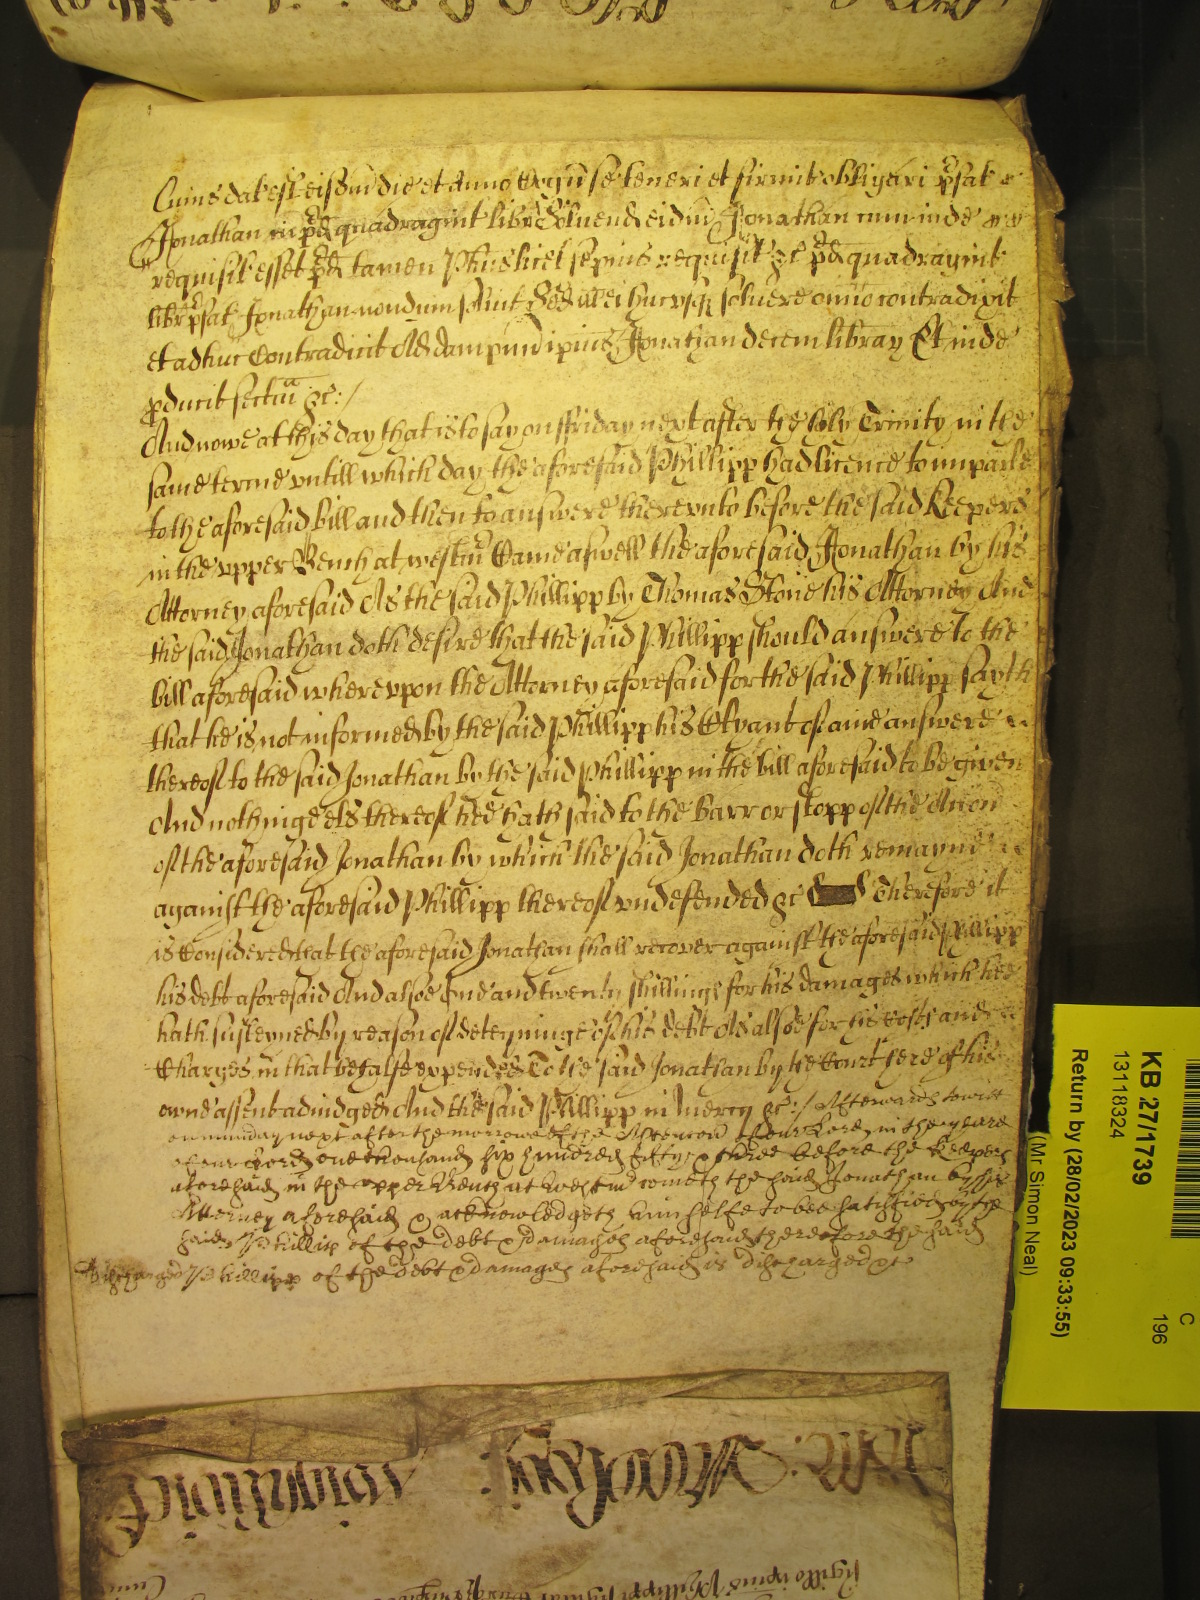 Cuius dat est eisdm die et Anno Cogn se teneri et firmit obligari p̃fat
Jonathan in p̃d quadragint libr Solvend eidm Jonathan cum inde
requisit esset p̃d tamen Phus licet sepius requisit &c p̃d quadragint
libr p̃fat Jonathan nondum solvit Sed ill ei hucusq solvere omnio contradixit
et adhuc Contradicit Ad dampnum ip̃ius Jonathan decem librar Et inde
p̱ducit sectam &c:/
And nowe at this day that is to say on ffriday next after the holy Trinity in the
same terme untill which day the aforesaid Phillipp had licence to imparle
to the aforesaid bill and then to answere thereunto before the said Keepers
in the upper Bench at westm̃ Came aswell the aforesaid Jonathan by his
Attorney aforesaid As the said Phillipp by Thomas Stone his Attorney And
the said Jonathan doth desire that the said Phillipp should answere To the
bill aforesaid whereupon the Attorney aforesaid for the said Phillipp sayth
that he is not informed by the said Phillipp his Clyant of anie answere
thereof to the said Jonathan by the said Phillipp in the bill aforesaid to be given
And nothinge els thereof hee hath said to the Barr or stopp of the Acc̃on
of the aforesaid Jonathan by which the said Jonathan doth remayne
against the aforesaid Phillipp thereof undefended &c Therefore it
is Considered that the aforesaid Jonathan shall recover against the aforesaid Phillipp
his debt aforesaid And alsoe One and twenty shillings for his damages which hee
hath susteyned by reason of deteyninge of his debt As alsoe for his costs and
Charges in that behalfe expended To the said Jonathan by the Court here of his
owne assent adiudged And the said Phillipp in Mercy &c:/ Afterwards towitt
on munday next after the morrowe of the Ascencon of our Lord in the yeare
of our Lord one thousand six hundred fifty & three before the Keepers
aforesaid in the upper Bench at Westm̃ cometh the said Jonathan by his
Attorney aforesaid & acknowledgeth himselfe to bee satisfied by the
said Phillip of the debt & damages aforesaid therefore the said
Discharged Phillipp of the debt & damages aforesaid is discharged &c
KB 27/1739
13118324
C
196
Return by (28/02/2023 09:33:55)
(Mr Simon Neal)